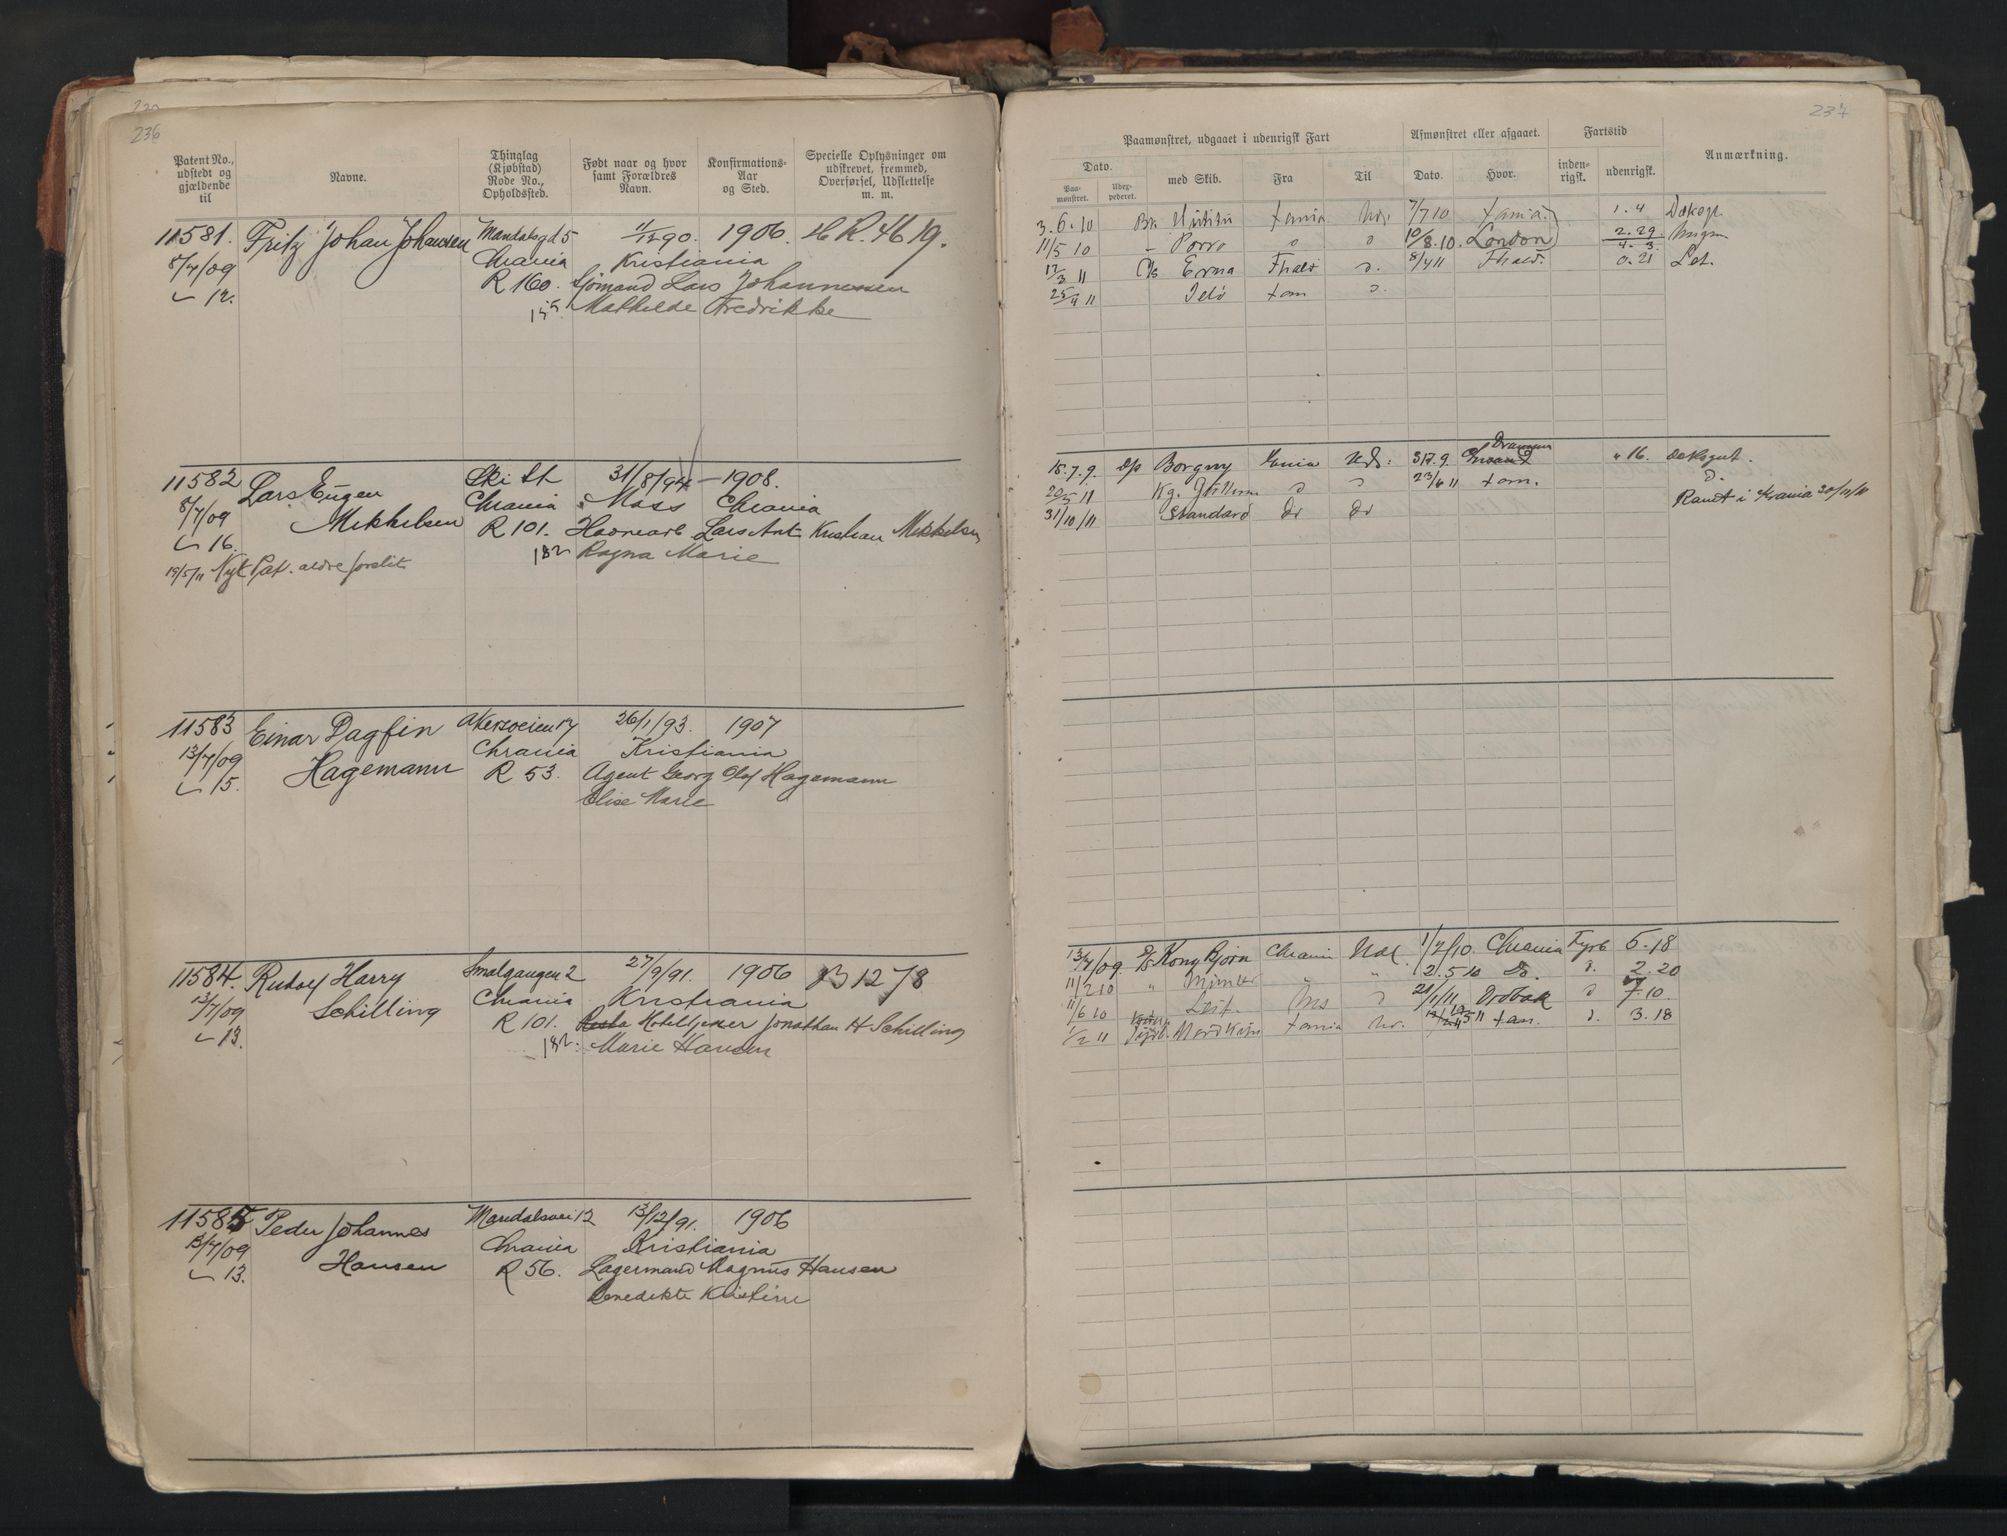 236
Patent No., udstedt og gjældende til
Navne.
Thinglag (Kjøbstad) Rode No., Opholdssted.
Født naar og hvor samt Forældres Navn.
Konfirmations-Aar og Sted.
Specielle Oplysninger om udskrevet, fremmed, Overførsel, Udslettelse m. m.
11581. Fritz Johan Johansen Mandalsgd 5 1/12 90. 1906. H R. 46 19.
8/7/09 Chrania Kristiania
12. R 160. Sjømand Lars Johannessen
155. Mathilde Fredrikke
11582 Lars Eugen Ski St 31/8/94 - 1908.
8/7/09 Mikkelsen Chrania Moss Chrania
16. R 101. Havnearb Lars Ant Kristian Mikkelsen
19/5/11 Nyt Pat. aldre forslit 182 Ragna Marie
11583 Einar Dagfin Akersveien 17 26/1/93. 1907
13/7/09 Hagemann Chrania Kristiania
15. R 53. Agent Georg Olaf Hagemann
Elise Marie
11584. Rudolf Harry Smalgangen 2 27/9/91. 1906 B 1278
13/7/09 Schilling Chrania Kristiania
13. R 101. Hoteltjener Jonathan H Schilling
182. Marie Hansen
11585 Peder Johannes Maridalsvei 12 13/12/91. 1906
13/7/09 Hansen Chrania Kristiania
13. R 56. Lagermand Magnus Hansen
Benedikte Kristine
237
Paamønstret, udgaaet i udenrigsk Fart
Afmønstret eller afgaaet.
Fartstid
Anmærkning.
Dato.
Paamønstret.
Udexpederet.
med Skib.
Fra
Til
Dato.
Hvor.
indenrigsk.
udenrigsk.
3.6.10 7/7 10 1. 4
11/5 10 - Porro 10/8.10. London 2. 29.
4. 3.
12/3 11 Erna Fhald 8/4 11 Fhald. 0. 21 Let.
25/4 11
15.7.9. Borgny Uds: 31.7.9. Drammen " 16. Deksgut.
20/5 11 23/6 11
31/10/11 Standard Rømt i Krania 30/11/11
13/7/09. D/S Kong Bjørn Chrania Udl. 1/2/10. Chrania Fyrb 5. 18
11/2 10 " " " 2. 5 10 Do. 2. 20
11/6 10 Leif. 21/1/11 Drøbak 7. 10.
1/2 11 3. 18